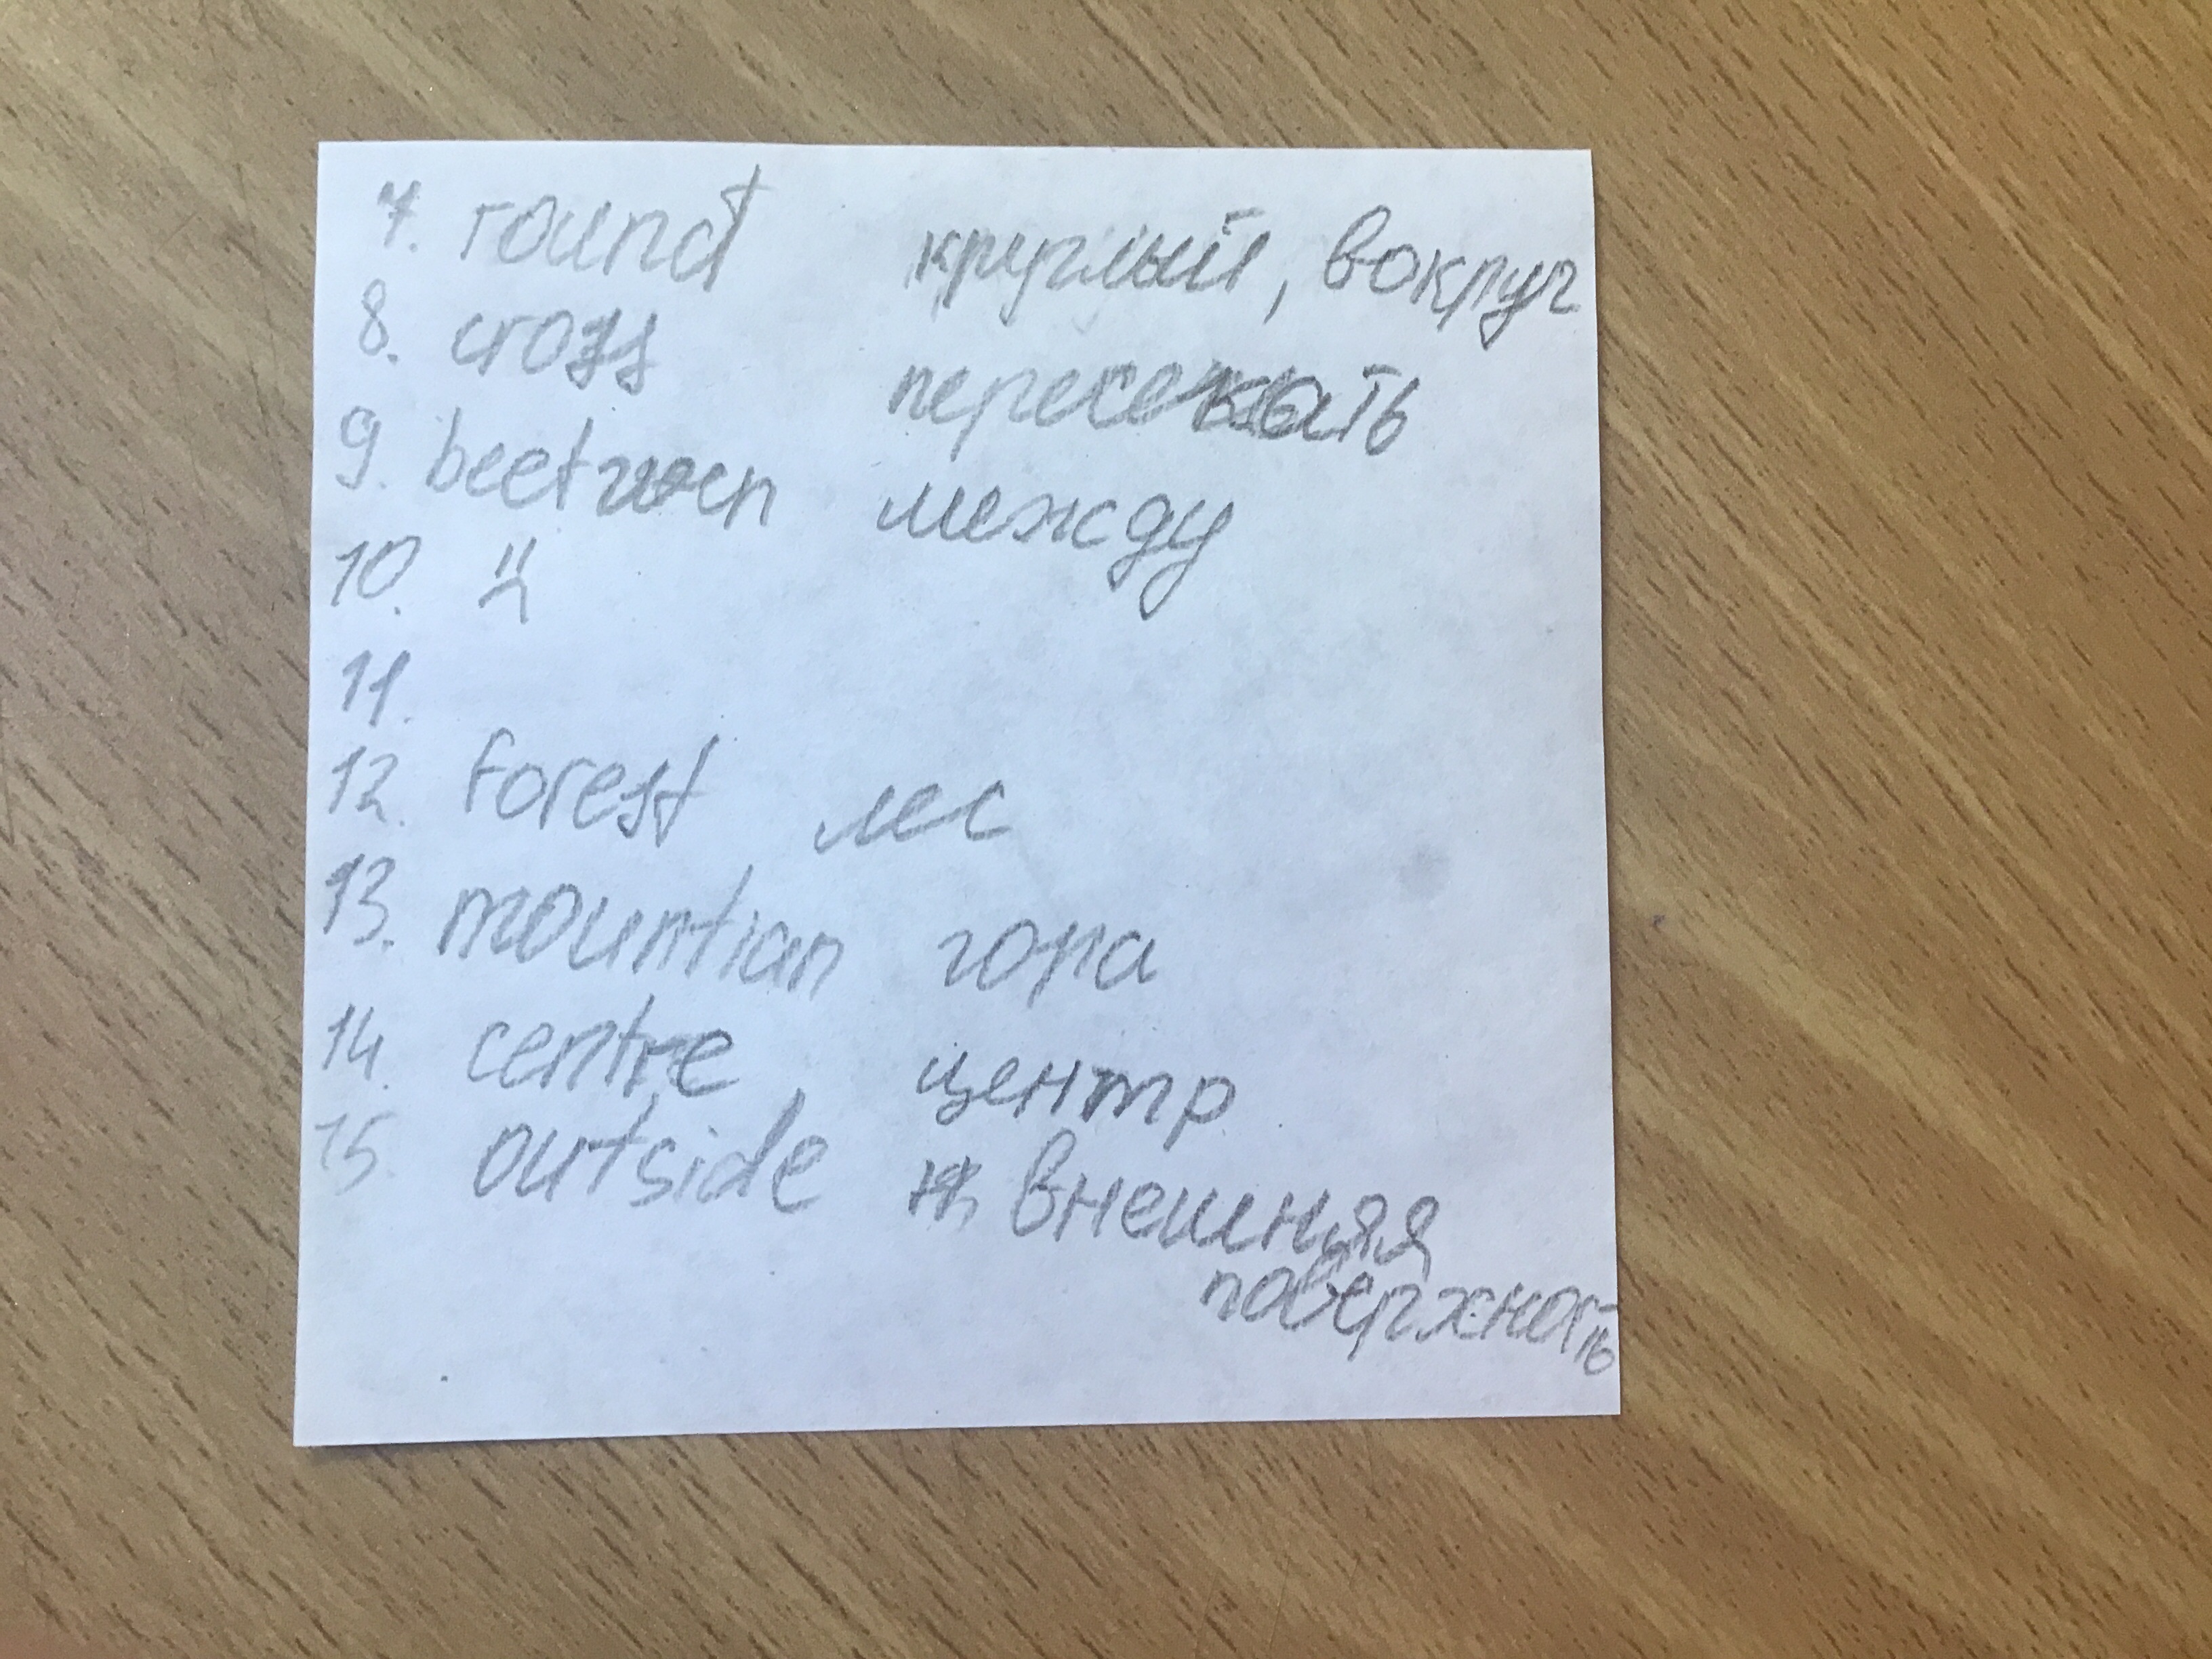 7. round круглый, вокруг
8. cross пересекать
9. beetween между
10.
11.
12. forest лес
13. mountian гора
14. centre центр
15. outside внешняя
поверхность